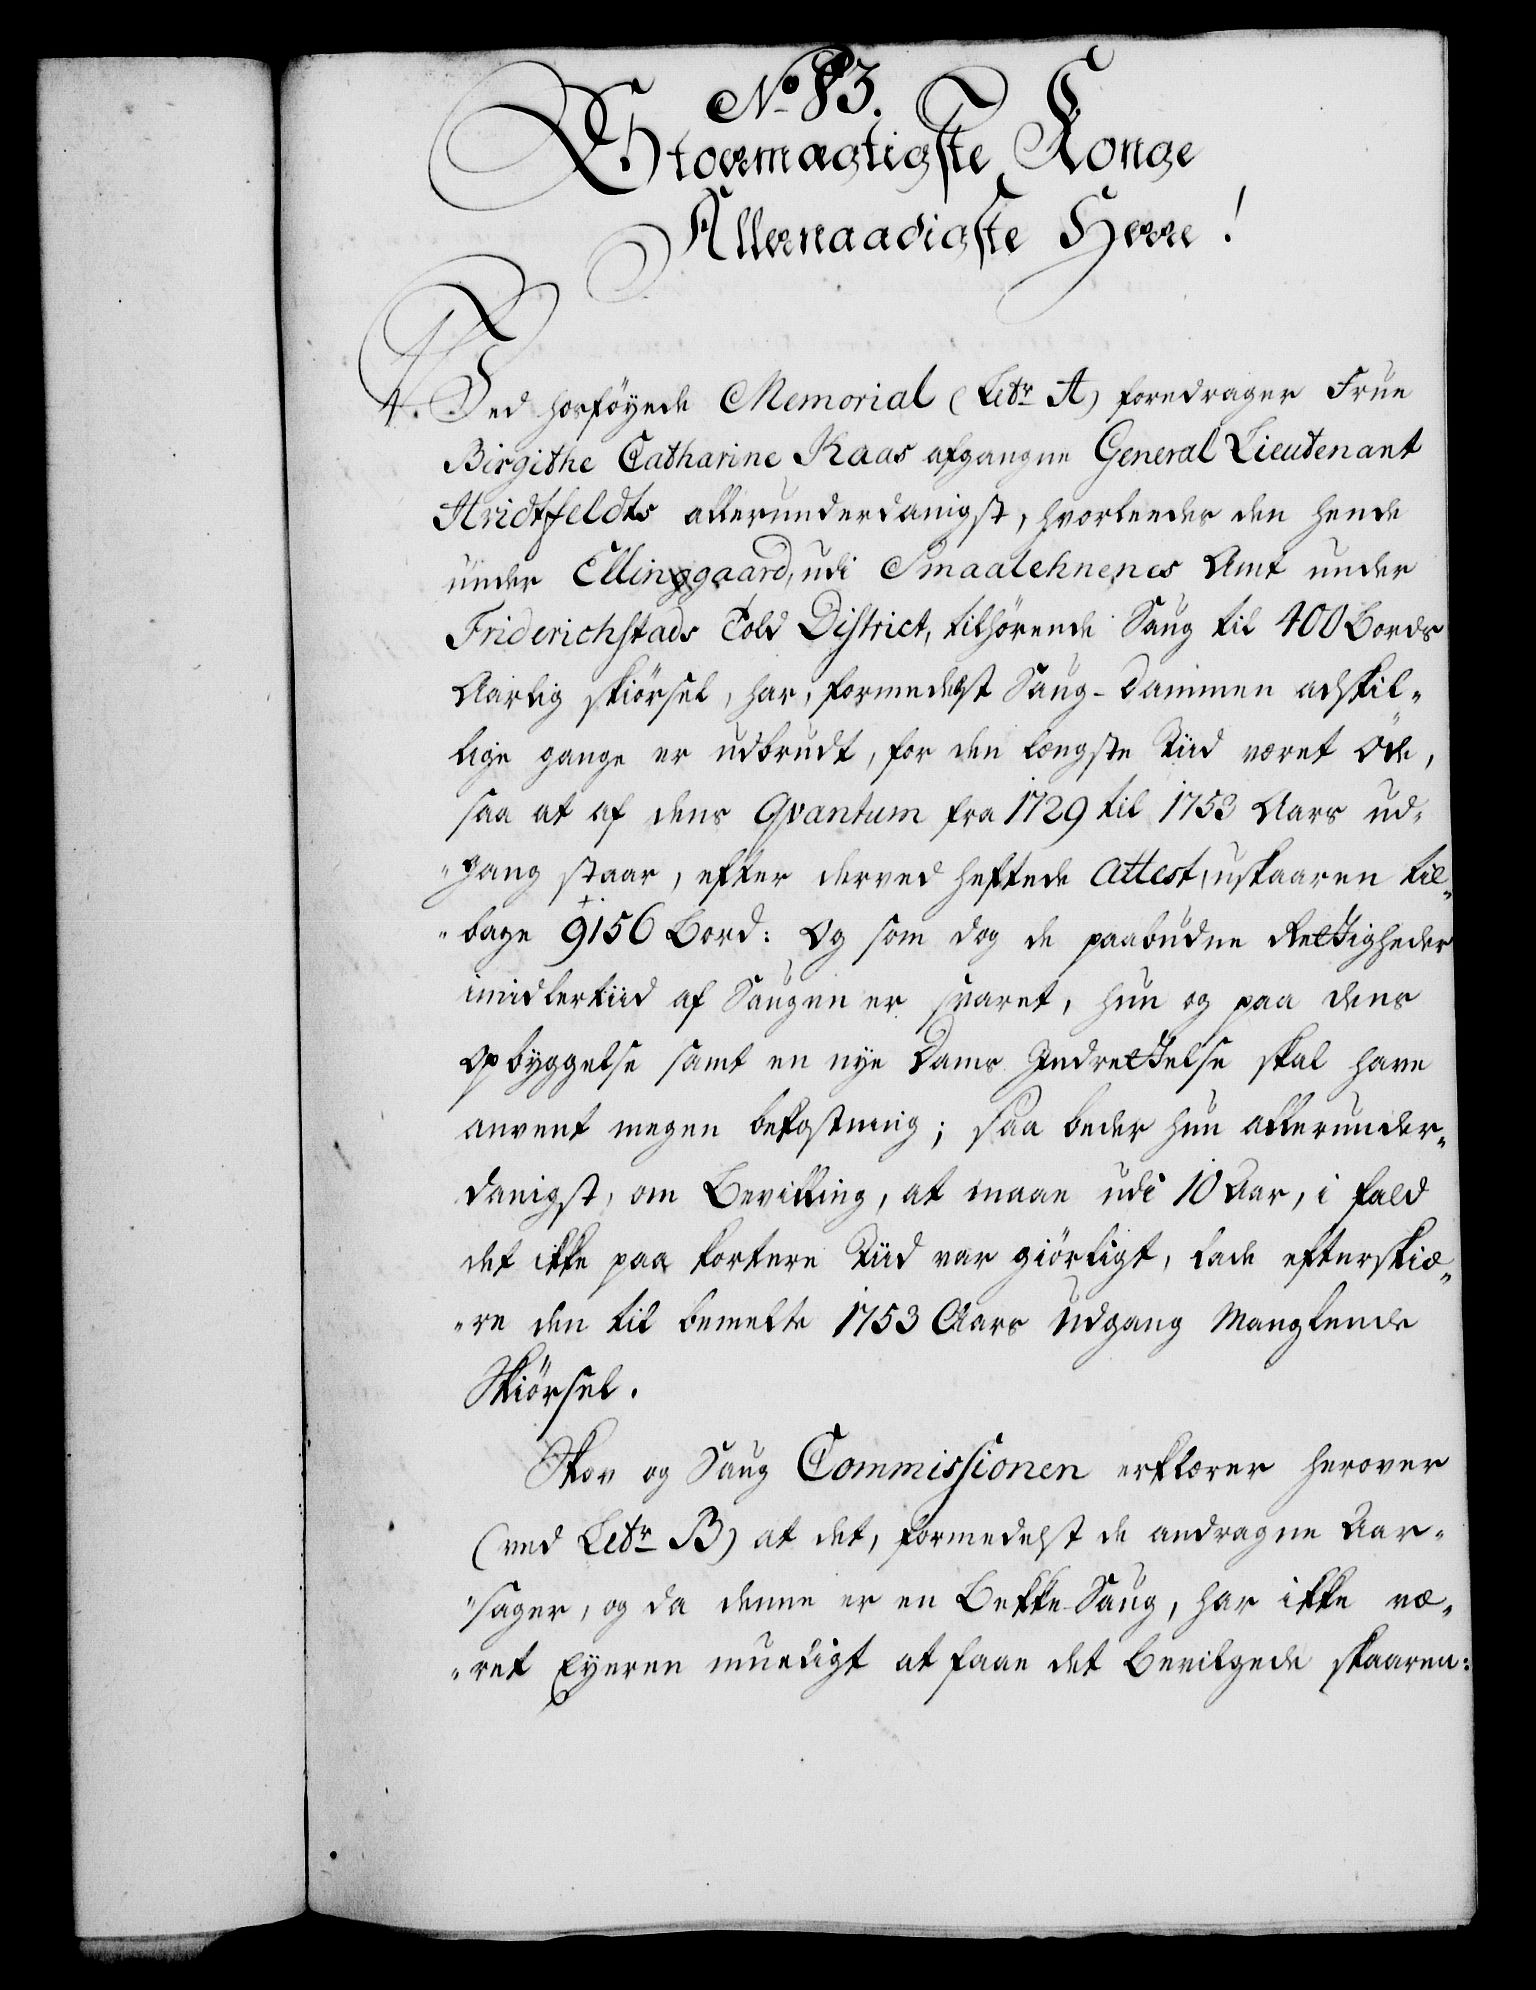 No 83.
Stormægtigste Konge
Allernaadigste Herre!
4. Ved hosföyede Memorial (Litr A) foredrager Frue
Birgithe Catharine Kaas afgangne General Lieutenant
Hvidtfeldts allerunderdanigst, hvorledes den hende
under Ellinggaard, udi Smaalehnenes Amt under
Friderichstads Told District, tilhörende Saug til 400 Bords
Aarlig skiörsel, har, formedelst Saug-Dammen adskil-
lige gange er udbrudt, for den længste Tiid været öde,
saa at af dens Qvantum fra 1729 til 1753 Aars ud-
gang staar, efter derved heftede Attest, uskaaren til-
bage 9156 Bord: Og som dog de paabudne Rettigheder
imidlertiid af Saugen er svaret, hun og paa dens
Opbyggelse samt en nye Dams Indrettelse skal have
anvent megen bekostning; saa beder hun allerunder-
danigst, om Bevilling, at maae udi 10 Aar, i fald
det ikke paa kortere Tiid var giörligt, lade efterskiæ-
re den til bemelte 1753 Aars Udgang Manglende
Skiörsel.
Skov og Saug Commissionen erklærer herover
(ved Litr B) at det, formedelst de andragne Aar-
sager, og da denne er en Bekke-Saug, har ikke væ-
ret Eyeren mueligt at faae det Bevilgede skaaren: